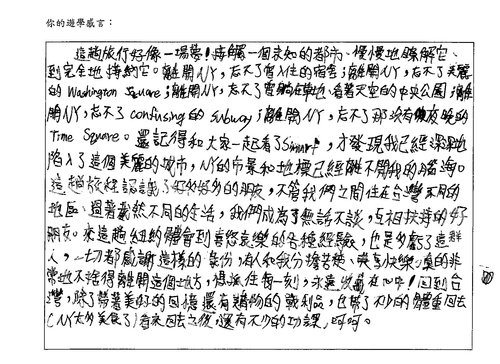 你的遊學感言：
這趟旅行好像一場夢！接觸一個未知的都市、慢慢地瞭解它、
到完全地接納它。離開NY，忘不了曾入住的宿舍；離開NY，忘不了美麗
的 Washington Square；離開NY，忘不了 躺在草地 看著天空的中央公園；離
開NY，忘不了 confusing的 subway；離開NY，忘不了那沒有夜晚的
Time Square。還記得和大家一起看了，才發現我已經深深地
陷入了這個美麗的城市，NY的市景和地標已經離不開我的腦海。
這趟旅程認識了好多好多的朋友，不管我們之間住在台灣不同的
地區、過著截然不同的生活，我們成為了無話不談、互相扶持的好
朋友。來這趟紐約體會到喜怒哀樂的各種經驗，也是多虧了這群
人，一切都感謝這樣的緣份，有人和我分擔苦楚、享快樂。真的非
常地不捨得離開這個地方，想抓住每一刻，永遠收藏在心中！回到台
灣，除了帶著美好的回憶還有購物的戰利品，也帶了不少的體重回去
(NY太多美食了) 看來回去之後，還有不少的功課，呵呵。